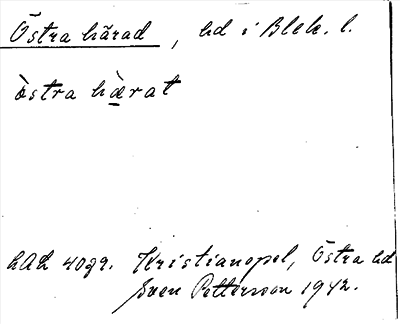 Östra härad, hd i Blek. l.
òstra hæ̀rat
LAL 4092. Kristianopel, Östra hd
Sven Pettersson 1942.